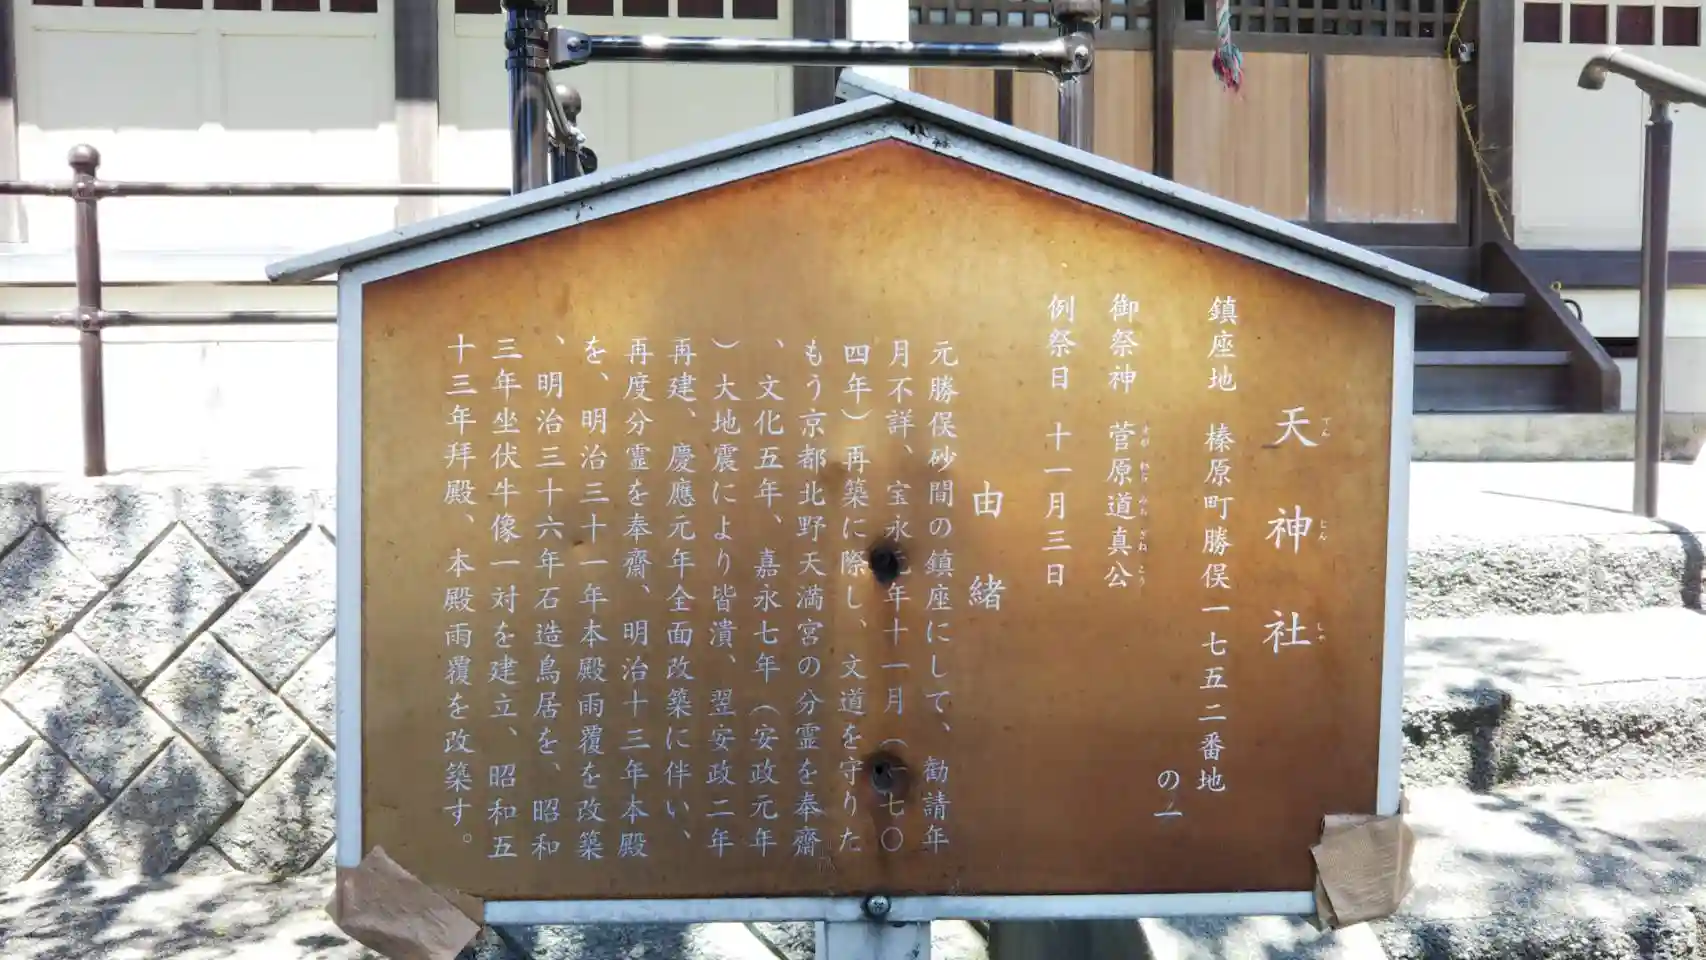 天神社
てんじんしゃ
鎮座地 榛原町勝俣一七五二番地
の一
御祭神 菅原道真公
すがわらみちざねこう
例祭日 十一月三日
由緒
元勝俣砂間の鎮座にして、勧請年
月不詳、宝永元年十一月(一七〇
四年)再築に際し、文道を守りた
もう京都北野天満宮の分霊を奉齋
、文化五年、嘉永七年(安政元年
)大地震により皆潰、翌安政二年
再建、慶應元年全面改築に伴い、
再度分霊を奉齋、明治十三年本殿
を、明治三十一年本殿雨覆を改築
、明治三十六年石造鳥居を、昭和
三年坐伏牛像一対を建立、昭和五
十三年拝殿、本殿雨覆を改築す。